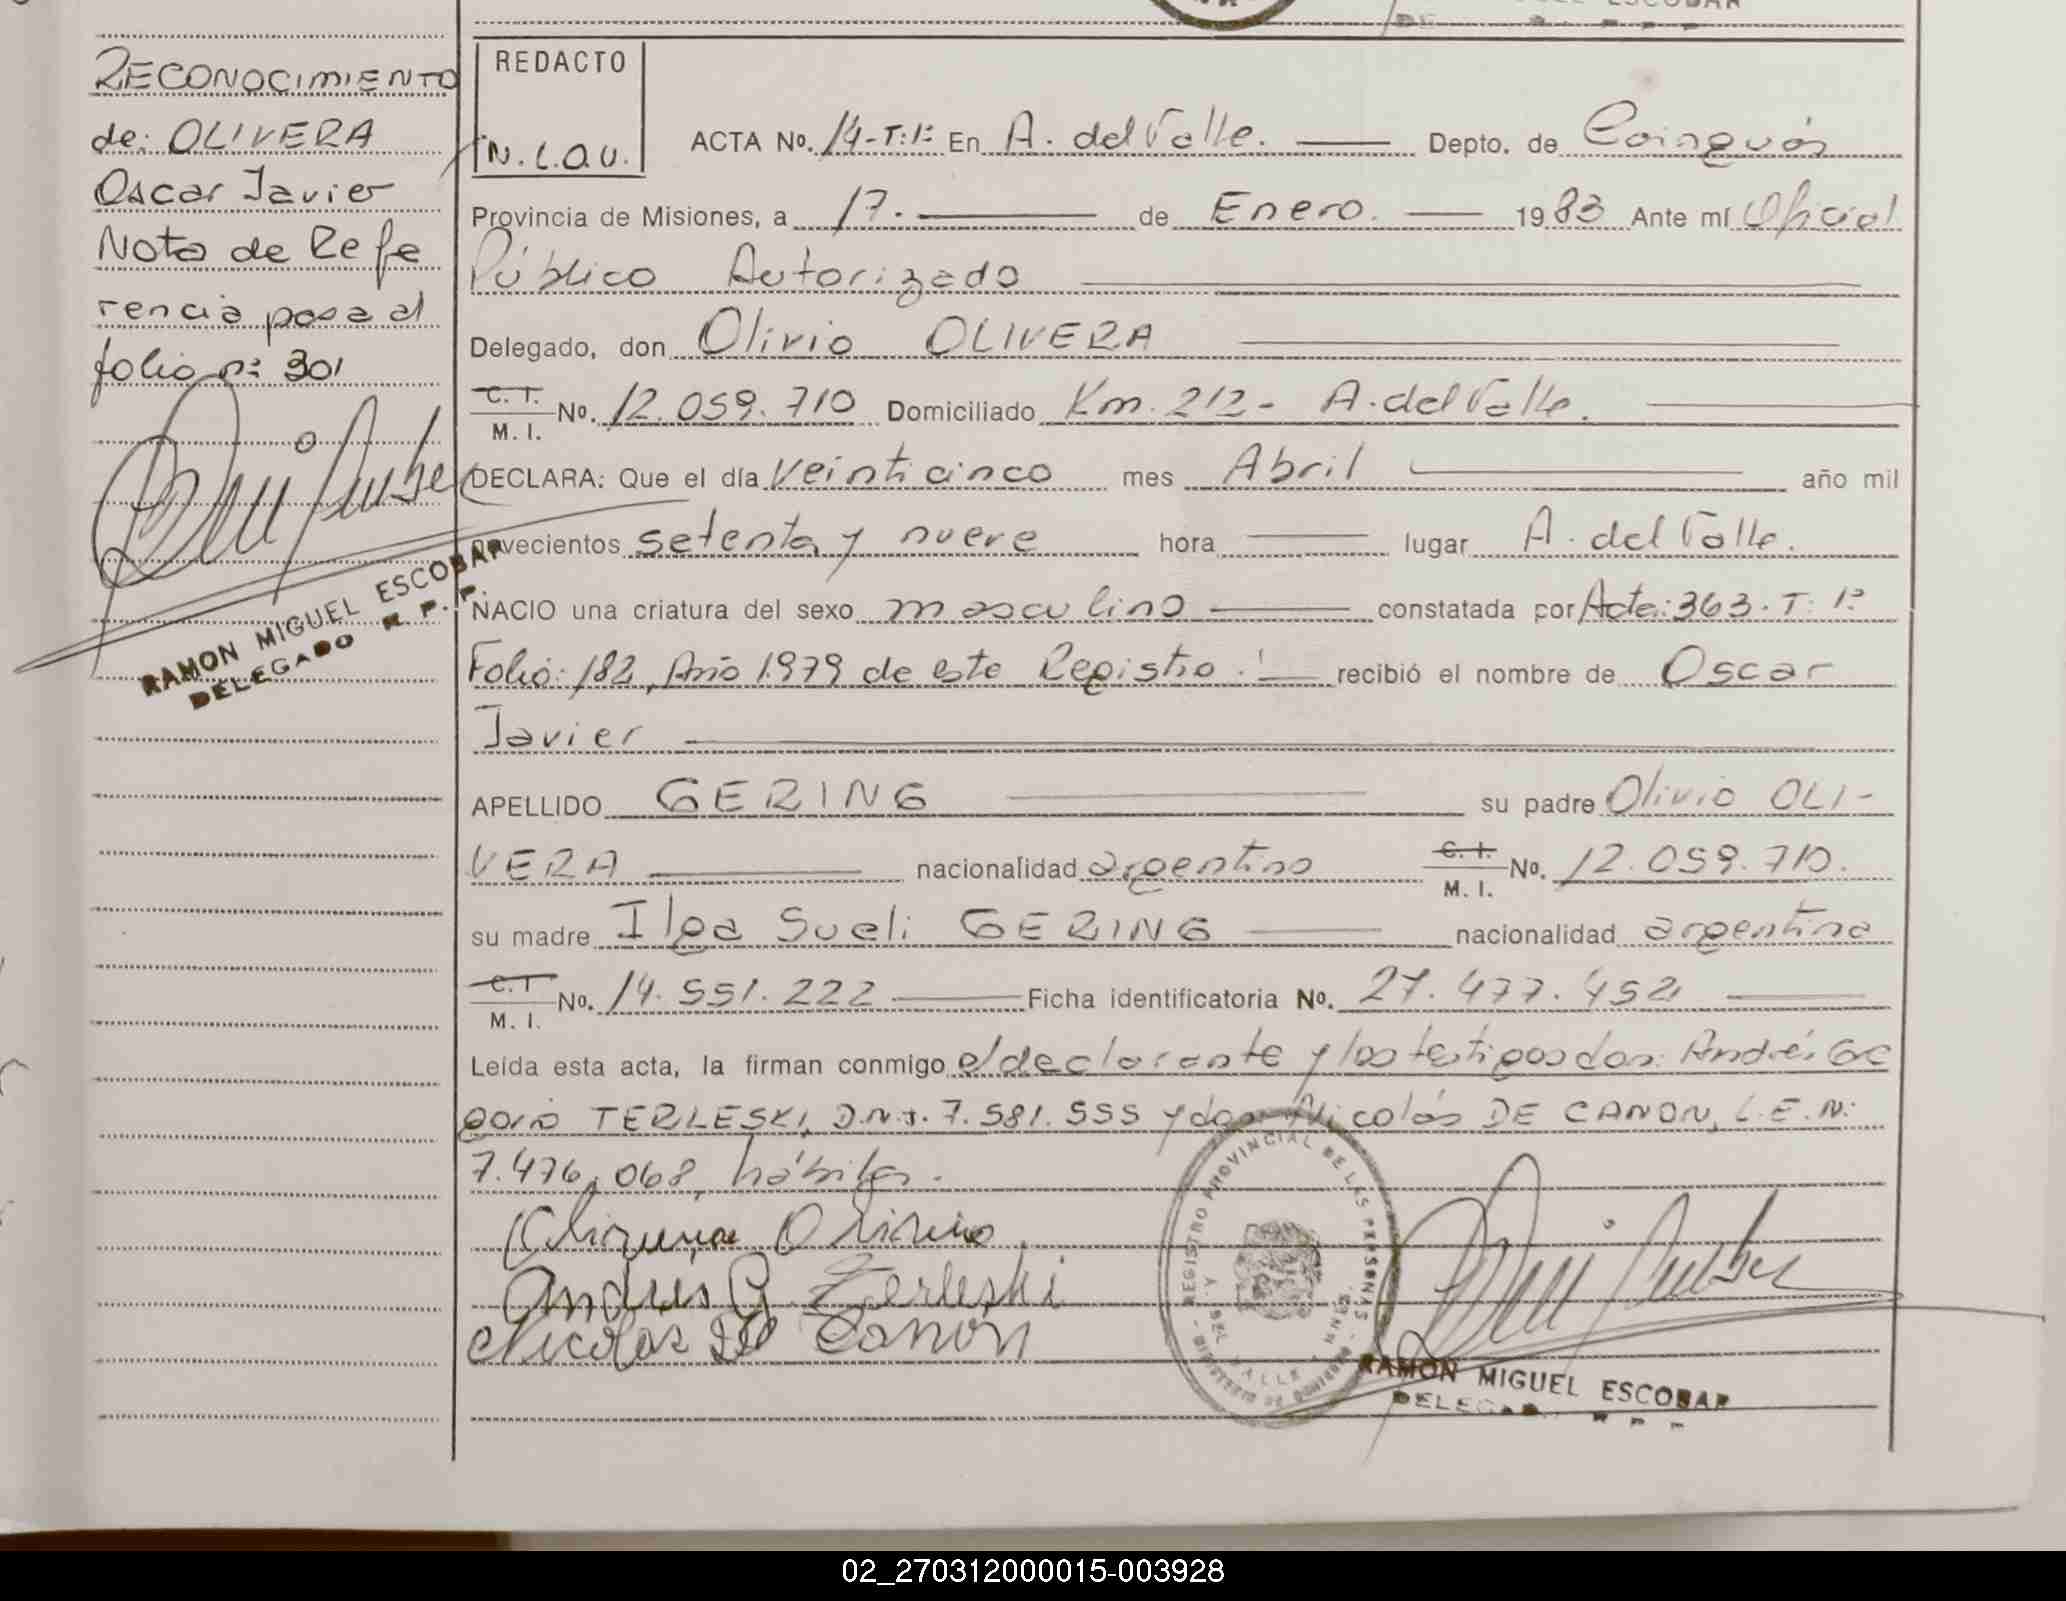 RECONOCIMIENTO
de: OLIVERA
Oscar Javier
Nota de Refe
rencia pasa al
folio nº 301
RAMON MIGUEL ESCOBAR
DELEGADO R. P. P.
REDACTO
N.L.O.U.
ACTA No. 14-T:1º En A. del Valle. Depto. de Cainguás
Provincia de Misiones, a 17. de Enero. 1983 Ante mí Oficial
Público Autorizado
Delegado, don Olivio OLIVERA
C. I. M. I. No. 12.059.710 Domiciliado Km. 212- A. del Valle.
DECLARA: Que el día veinticinco mes Abril año mil
novecientos setenta y nueve hora lugar A. del Valle.
NACIO una criatura del sexo masculino constatada por Acta: 363. T: 1º
Folio: 182, Año 1.979 de este Registro. recibió el nombre de Oscar
Javier
APELLIDO GERING su padre Olivio OLI-
VERA nacionalidad argentino C. I. M. I. No. 12.059.710.
su madre Ilga Sueli GERING nacionalidad argentina
C. I. M. I. No. 14.551.222 Ficha identificatoria No. 27.477.452
Leída esta acta, la firman conmigo el declarante y los testigos don: Andrés Gre
gorio TERLESKI, D.N.I. 7.581.555 y don Nicolás DE CANON, L.E.N:
7.476.068, hábiles.
Olivio
Andrés G Terleski
Nicolas De Canon
REGISTRO PROVINCIAL DE LAS PERSONAS
A. DEL VALLE
RAMON MIGUEL ESCOBAR
DELEGADO R P P
02_270312000015-003928